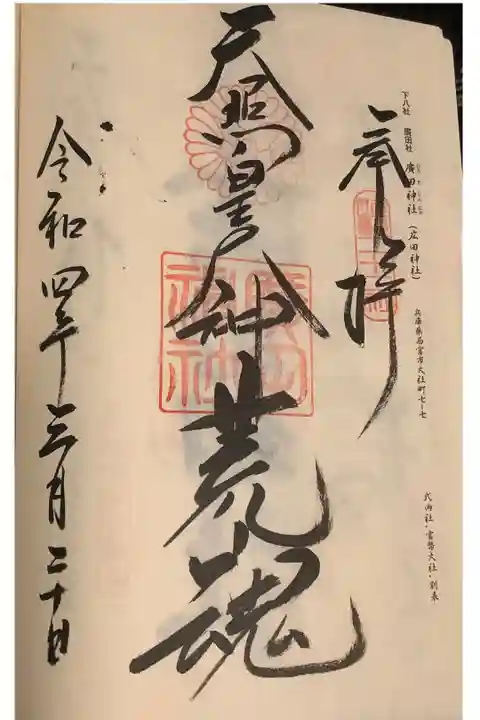 下八社 廣田社 廣田神社(広田神社) 兵庫県西宮市大社町七-七
式内社・官幣大社・別表
奉拝
天照皇神荒魂
廣田神社
令和四年三月二十日